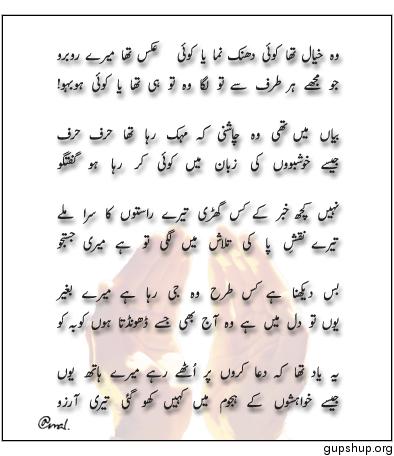 وہ خیال تھا کوئی دھنک نما یا کوئی عکس تھا میرے روبرو
جو مجھے ہر طرف سے تو لگا وہ تو ہی تھا یا کوئی ہوبہو!
بیاں میں تھی وہ چاشنی کہ مہک رہا تھا حرف حرف
جیسے خوشبووں کی زبان میں کوئی کر رہا ہو گفتگو
نہیں کچھ خبر کے کس گھڑی تیرے راستوں کا سرا ملے
تیرے نقشِ پا کی تلاش میں لگی تو ہے میری جستجو
بس دیکھنا ہے کس طرح وہ جی رہا ہے میرے بغیر
یوں تو دل میں ہے وہ آج بھی جسے ڈھونڈتا ہوں کوبہ کو
یہ یاد تھا کہ دعا کروں پر اُٹھے رہے میرے ہاتھ یوں
جیسے خواہشوں کے ہجوم میں کہیں کھو گئی تیری آرزو
gupshup.org